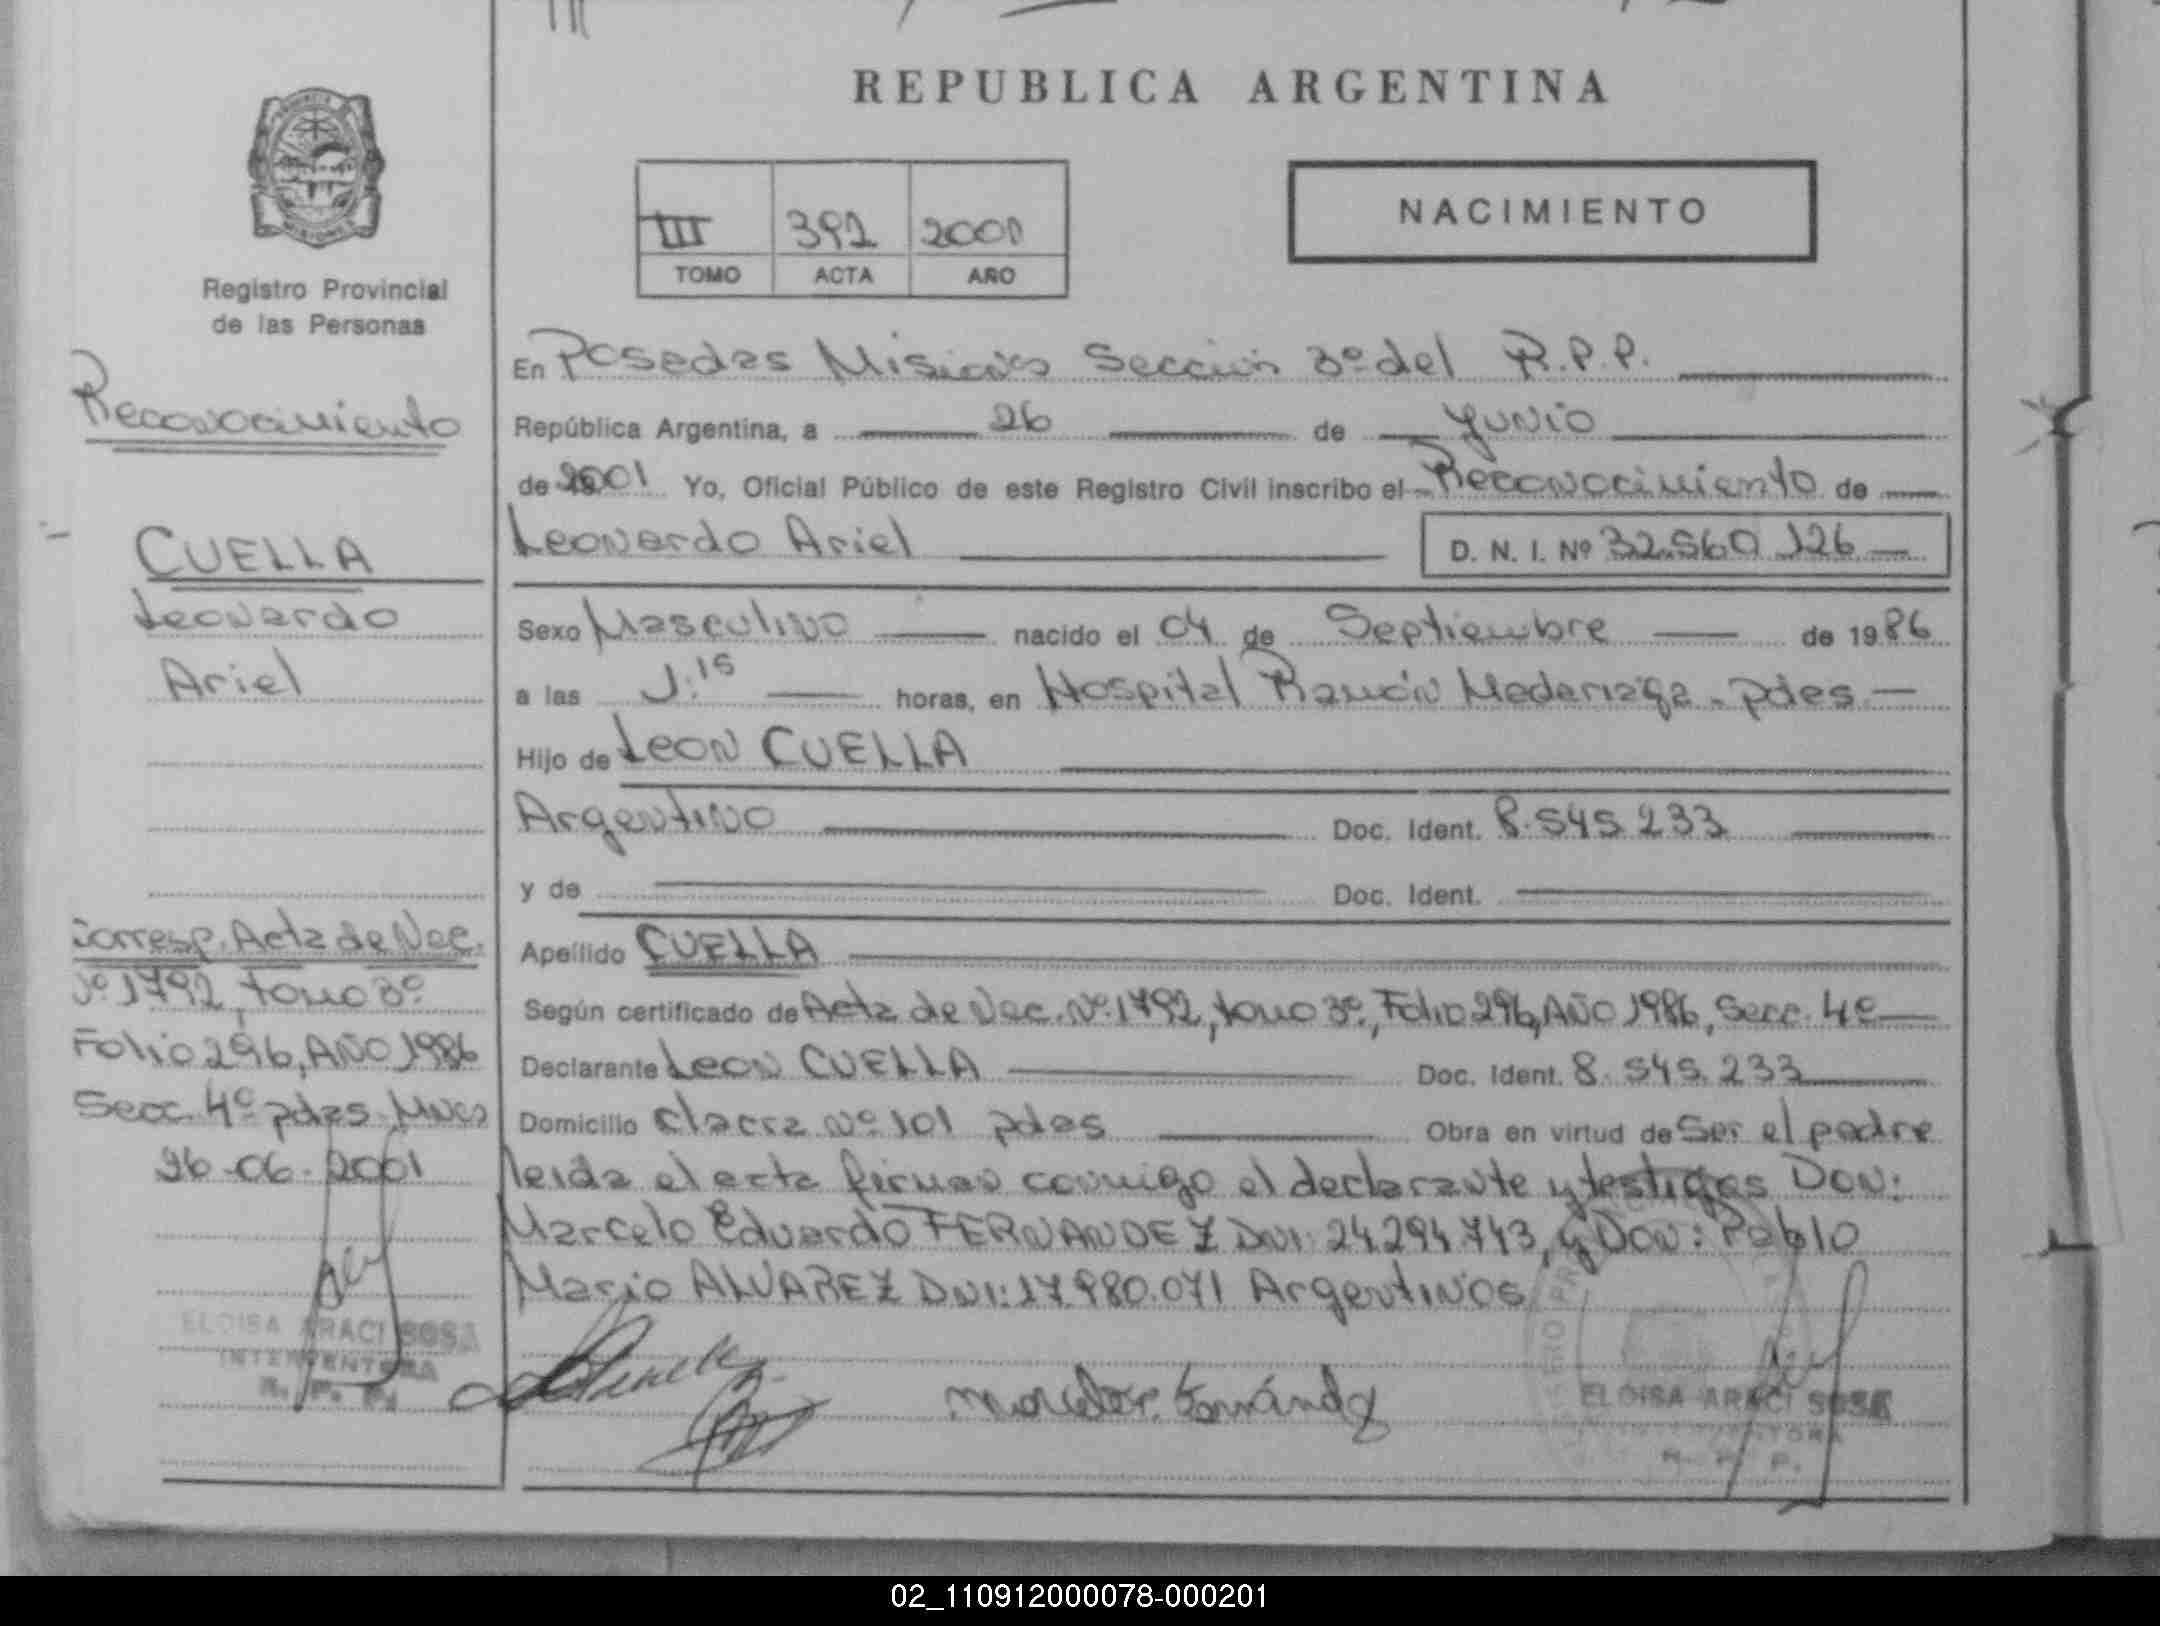 REPUBLICA ARGENTINA
III 392 2001
TOMO ACTA AÑO
NACIMIENTO
Registro Provincial
de las Personas
Reconocimiento
CUELLA
Leonardo
Ariel
Corresp. Acta de Nac.
Nº 1792, tomo 3º
Folio 296, AÑO 1986
Secc. 4º pdas Mnes
26-06-2001
ELOISA ARACI SOSA
INTERVENTORA
R. P. P.
En Posadas Misiones Sección 3º del R.P.P.
República Argentina, a 26 de Junio
de 2001 Yo, Oficial Público de este Registro Civil inscribo el Reconocimiento de
Leonardo Ariel D. N. I. Nº 32.560.126
Sexo Masculino nacido el 04 de Septiembre de 1986
a las 1:15 horas, en Hospital Ramón Madariaga - pdas
Hijo de Leon CUELLA
Argentino Doc. Ident. 8.545.233
y de Doc. Ident.
Apellido CUELLA
Según certificado de Acta de Nac. Nº 1792, tomo 3º, Folio 296, AÑO 1986, Secc. 4º
Declarante Leon CUELLA Doc. Ident. 8.545.233
Domicilio chacra Nº 101 pdas Obra en virtud de Ser el padre
leida el acta firman conmigo el declarante y testigos DON:
Marcelo Eduardo FERNANDEZ DNI: 24.294.743, y DON: Pablo
Mario ALVAREZ DNI: 17.980.071 Argentinos
ELOISA ARACI SOSA
INTERVENTORA
R. P. P.
02_110912000078-000201